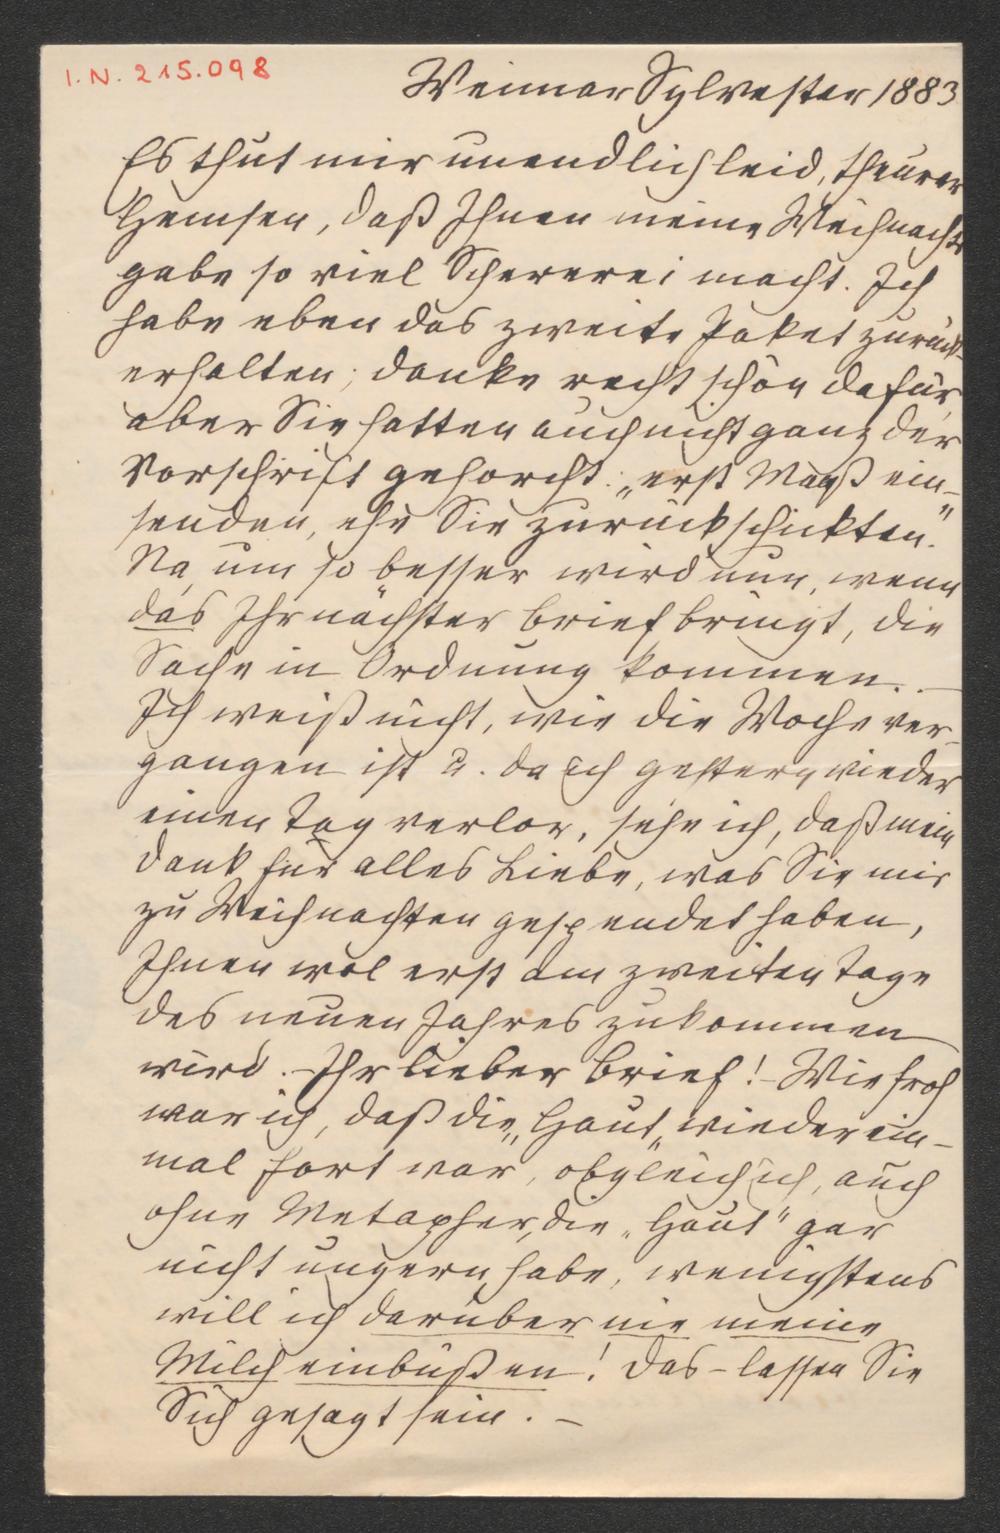 I.N. 215.098
Weimar Sylvester 1883
Es thut mir unendlich leid, theurer
daß Ihnen meine Weihnachts
gabe so viel Schererei macht. Ich
habe eben das zweite Paket zurück-
erhalten; danke recht schön dafür,
aber Sie hatten auch nicht ganz der
Vorschrift gehorcht: „erst Maaß ein-
senden, ehe Sie zurückschickten."
Na, um so besser wird nun, wenn
das Ihr nächster Brief bringt, die
Sache in Ordnung kommen. –
Ich weiß nicht, wie die Woche ver-
gangen ist u. da ich gestern wieder
einen Tag verlor, sehe ich, daß mein
Dank für alles Liebe, was Sie mir
zu Weihnachten gespendet haben,
Ihnen wol erst am zweiten Tage
des neuen Jahres zukommen
wird. – Ihr lieber Brief! – Wie froh
war ich, daß die „Haut" wieder ein-
mal fort war, obgleich ich, auch
ohne Metapher, die „Haut" gar
nicht ungern habe, wenigstens
will ich darüber nie meine
Milch einbüßen! Das – lassen Sie
Sich gesagt sein. –